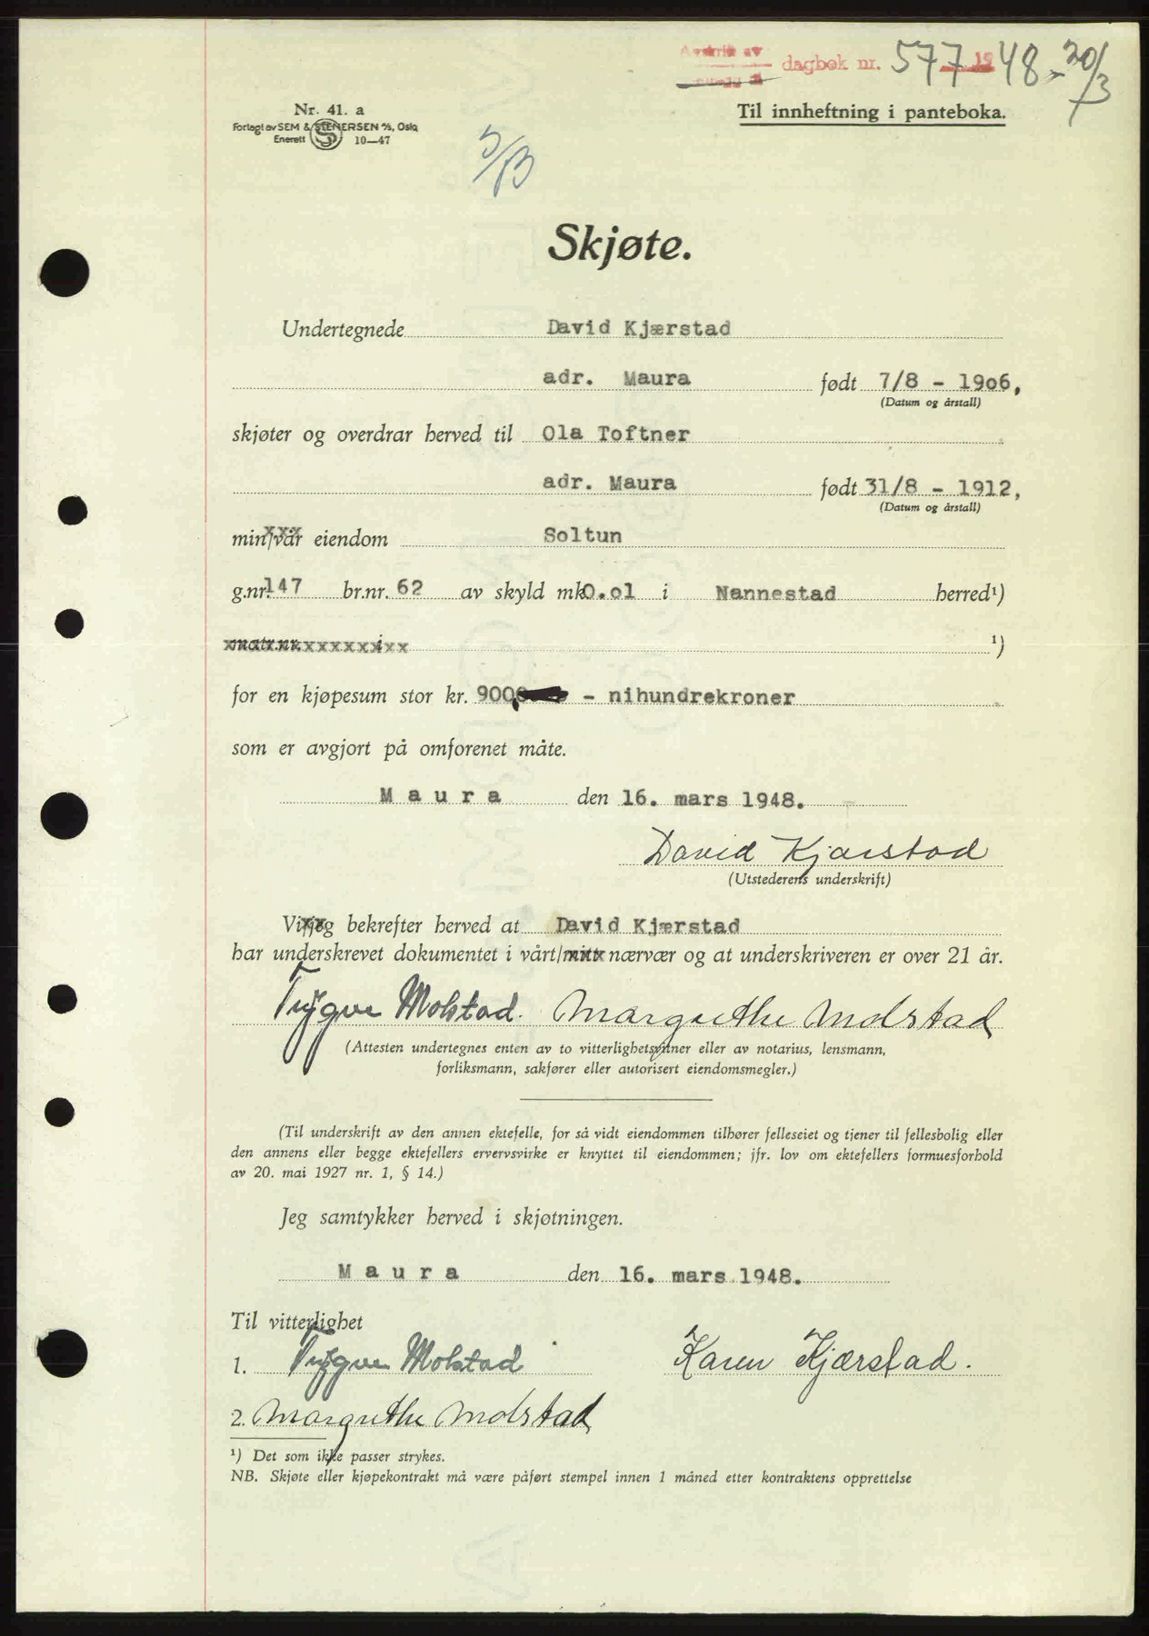 dagbok nr. 577 1948 - 20/3
Nr. 41. a
Til innheftning i panteboka.
Forlagt av SEM & STENERSEN A/S, Oslo
Enerett S 10—47
Skjøte.
Undertegnede David Kjærstad
adr. Maura født 7/8 - 1906,
(Datum og årstall)
skjøter og overdrar herved til Ola Toftner
adr. Maura født 31/8 - 1912,
(Datum og årstall)
min/vår eiendom Soltun
g.nr. 147 br.nr. 62 av skyld mk 0.01 i Nannestad herred¹)
matr.nr. i ¹)
for en kjøpesum stor kr. 900 - nihundrekroner
som er avgjort på omforenet måte.
Maura den 16. mars 1948.
David Kjærstad
(Utstederens underskrift)
Vi/jeg bekrefter herved at David Kjærstad
har underskrevet dokumentet i vårt/mitt nærvær og at underskriveren er over 21 år.
Trygve Molstad. Margrethe Molstad
(Attesten undertegnes enten av to vitterlighetsvitner eller av notarius, lensmann,
forliksmann, sakfører eller autorisert eiendomsmegler.)
(Til underskrift av den annen ektefelle, for så vidt eiendommen tilhører felleseiet og tjener til fellesbolig eller
den annens eller begge ektefellers ervervsvirke er knyttet til eiendommen; jfr. lov om ektefellers formuesforhold
av 20. mai 1927 nr. 1, § 14.)
Jeg samtykker herved i skjøtningen.
Maura den 16. mars 1948.
Til vitterlighet
1. Trygve Molstad Karen Kjærstad.
2. Margrethe Molstad
¹) Det som ikke passer strykes.
NB. Skjøte eller kjøpekontrakt må være påført stempel innen 1 måned etter kontraktens opprettelse